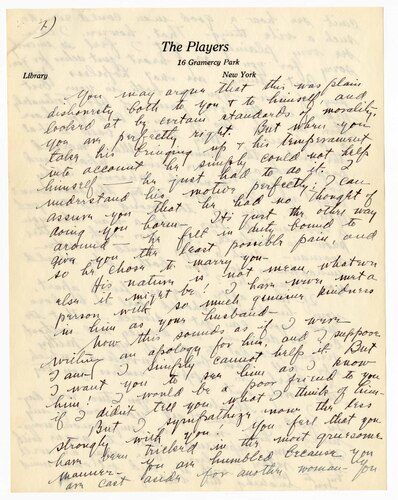 7)
The Players
16 Gramercy Park
Library New York
You may argue that this was plain
dishonesty both to you & to himself, and
looked at by certain standards of morality,
you are perfectly right. But when you
take his bringing up & his temperament
into account he simply could not help
himself — he just had to do it. I
understand his motive perfectly; I can
assure you that he had no thought of
doing you harm — It's just the other way
around — he felt in duty bound to
give you the least possible pain, and
so he chose to marry you —
His nature is not mean, whatever
else it might be! I have never met a
person with so much genuine kindness
in him as your husband —
Now this sounds as if I were
writing an apology for him, and I suppose
I am — I simply cannot help it. But
I want you to see him as I know
him! I would be a poor friend to you
if I didn't tell you what I think of him —
But I sympathize none the less
strongly with you! You feel that you
have been tricked in the most gruesome
manner — You are humbled because you
are cast aside for another woman — You